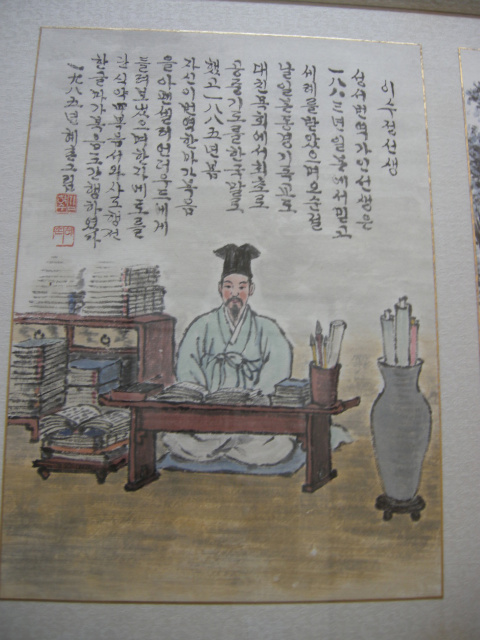 이수정 선생
성서번역가인 선생은
一八八三년 일본에서 믿고
세례를 받았으며 오순절
날 일본 동경 기독교도
대친목회에서 최초로
공중기도를 한국말로
했고 一八八五년 봄
자신이 번역한 마가복음
을 아펜셀러 언더우드에게
들려보냈으며 한자에 토를
복음서와 사도행전
한글 마가복음 간행하였다
一九八五년 혜촌 그림